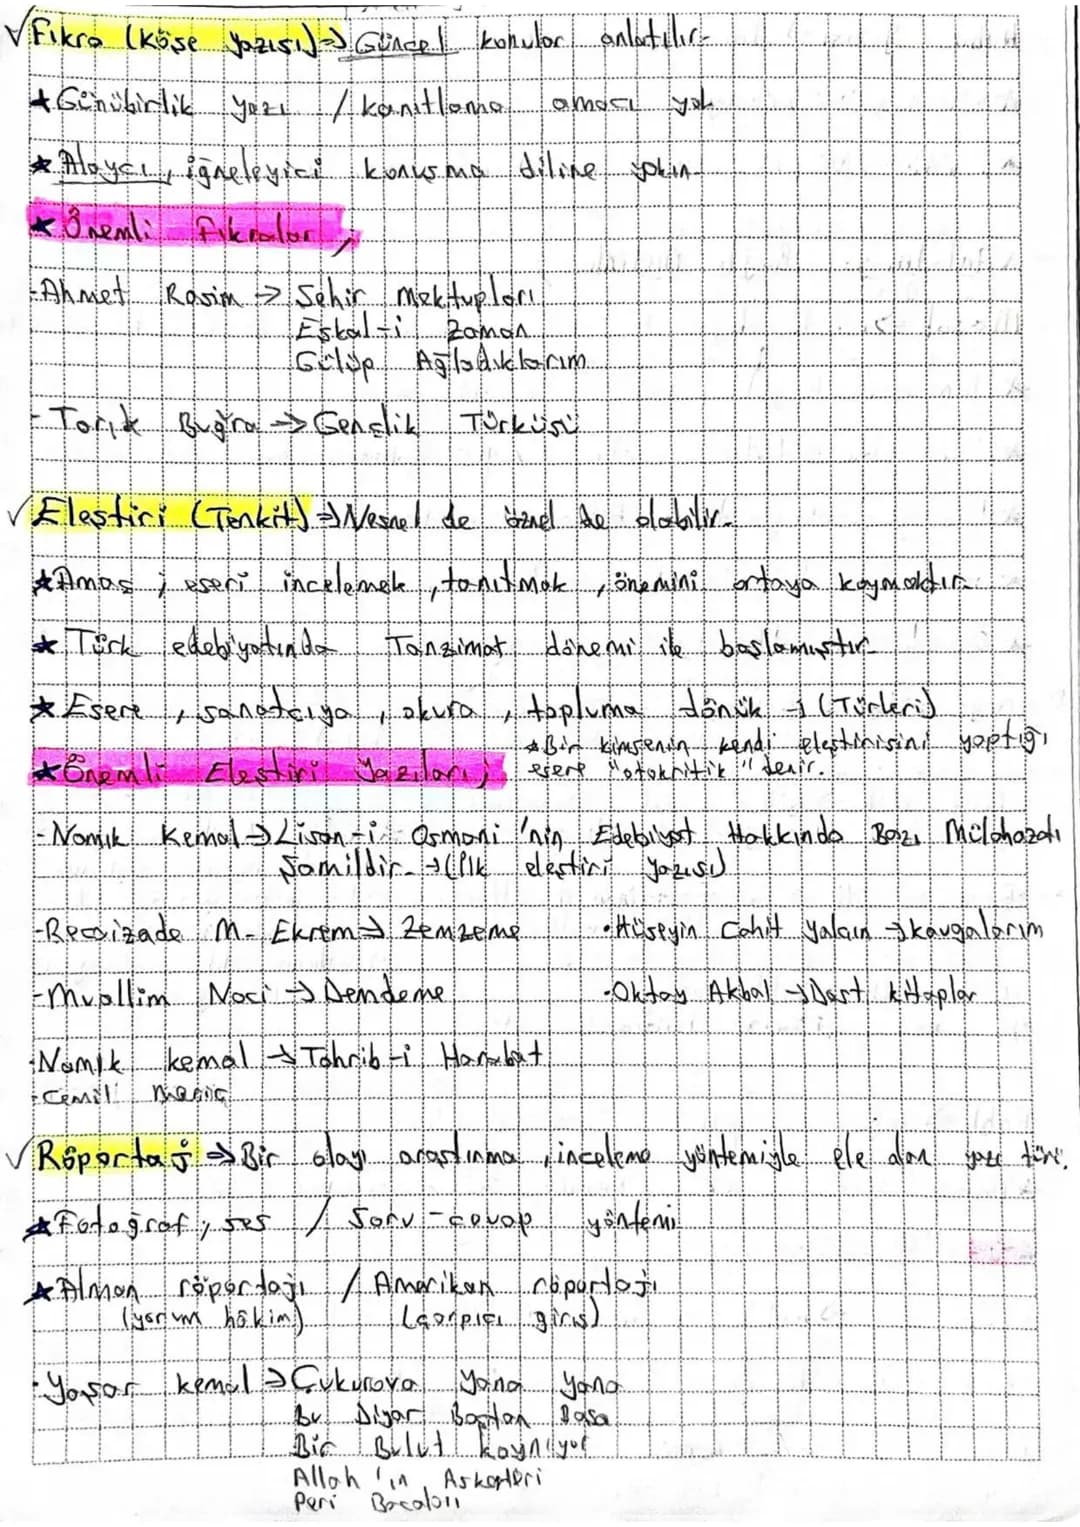 √Fıkra (köşe yazısı) => Güncel konular anlatılır.
★Günübirlik yazı / kanıtlama amacı yok
★Alaycı, iğneleyici konuşma diline yakın.
★Önemli Fıkralar;
-Ahmet Rasim → Şehir Mektupları
Eşkal-i Zaman
Gülüp Ağladıklarım
-Tarık Buğra → Gençlik Türküsü
√Eleştiri (Tenkit) => Nesnel de öznel de olabilir.
★Amaç; eseri incelemek, tanıtmak, önemini ortaya koymaktır.
★Türk edebiyatında Tanzimat dönemi ile başlamıştır.
★Esere, sanatçıya, okura, topluma dönük → (Türleri)
★Bir kimsenin kendi eleştirisini yaptığı
esere "otokritik" denir.
★Önemli Eleştiri Yazıları;
-Namık Kemal → Lisan-i Osmani'nin Edebiyat Hakkında Bazı Mülahazatı
Şamildir. → (İlk eleştiri yazısı)
-Recaizade M. Ekrem → Zemzeme
•Hüseyin Cahit Yalçın → Kavgalarım
-Muallim Naci → Demdeme
•Oktay Akbal → Dost Kitaplar
-Namık Kemal → Tahrib-i Harabat
-Cemil Meriç
√Röportaj => Bir olayı araştırma, inceleme yöntemiyle ele alan yazı türü.
★Fotoğraf, ses / Soru-cevap yöntemi
★Alman röportajı / Amerikan röportajı
(yorum hâkim) (çarpıcı giriş)
-Yaşar Kemal → Çukurova Yana Yana
Bu Diyar Baştan Başa
Bir Bulut Kaynıyor
Allah'ın Askerleri
Peri Bacaları